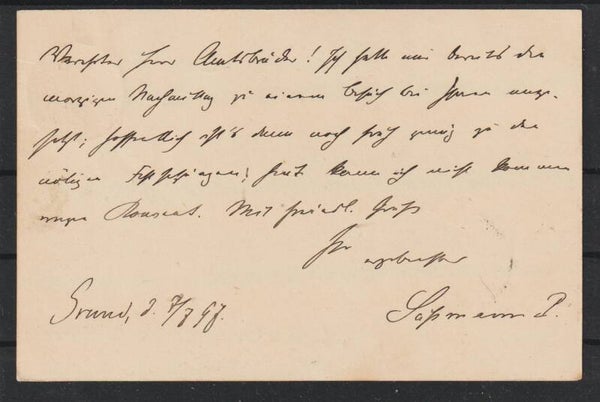 Verehrter Herr Amtsbruder! Ich hatte mir bereits den
morgigen Nachmittag zu einem Besuch bei Ihnen ange-
setzt; hoffentlich ist's dann noch früh genug zu den
nötigen Festsetzungen; heut kann ich nicht kommen
wegen Konvent. Mit freundl. Gruß
Ihr ergebenster
Grund, d. 7/7 97.
Saßmann P.